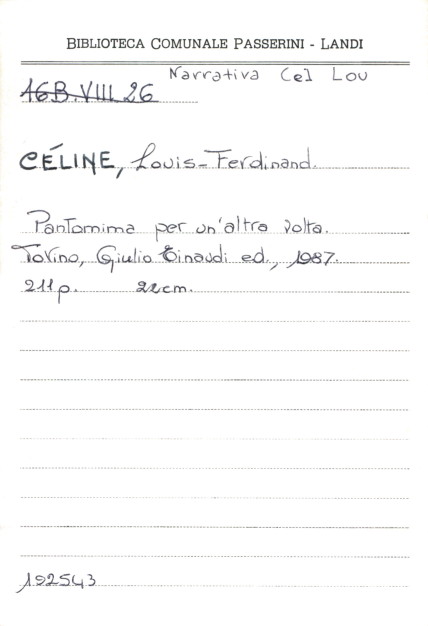 BIBLIOTECA COMUNALE PASSERINI - LANDI
Narrativa Cel Lou
16B.VIII 26
CÉLINE, Louis-Ferdinand.
Pantomima per un'altra volta.
Torino, Giulio Einaudi ed., 1987.
211 p. 22 cm.
192543